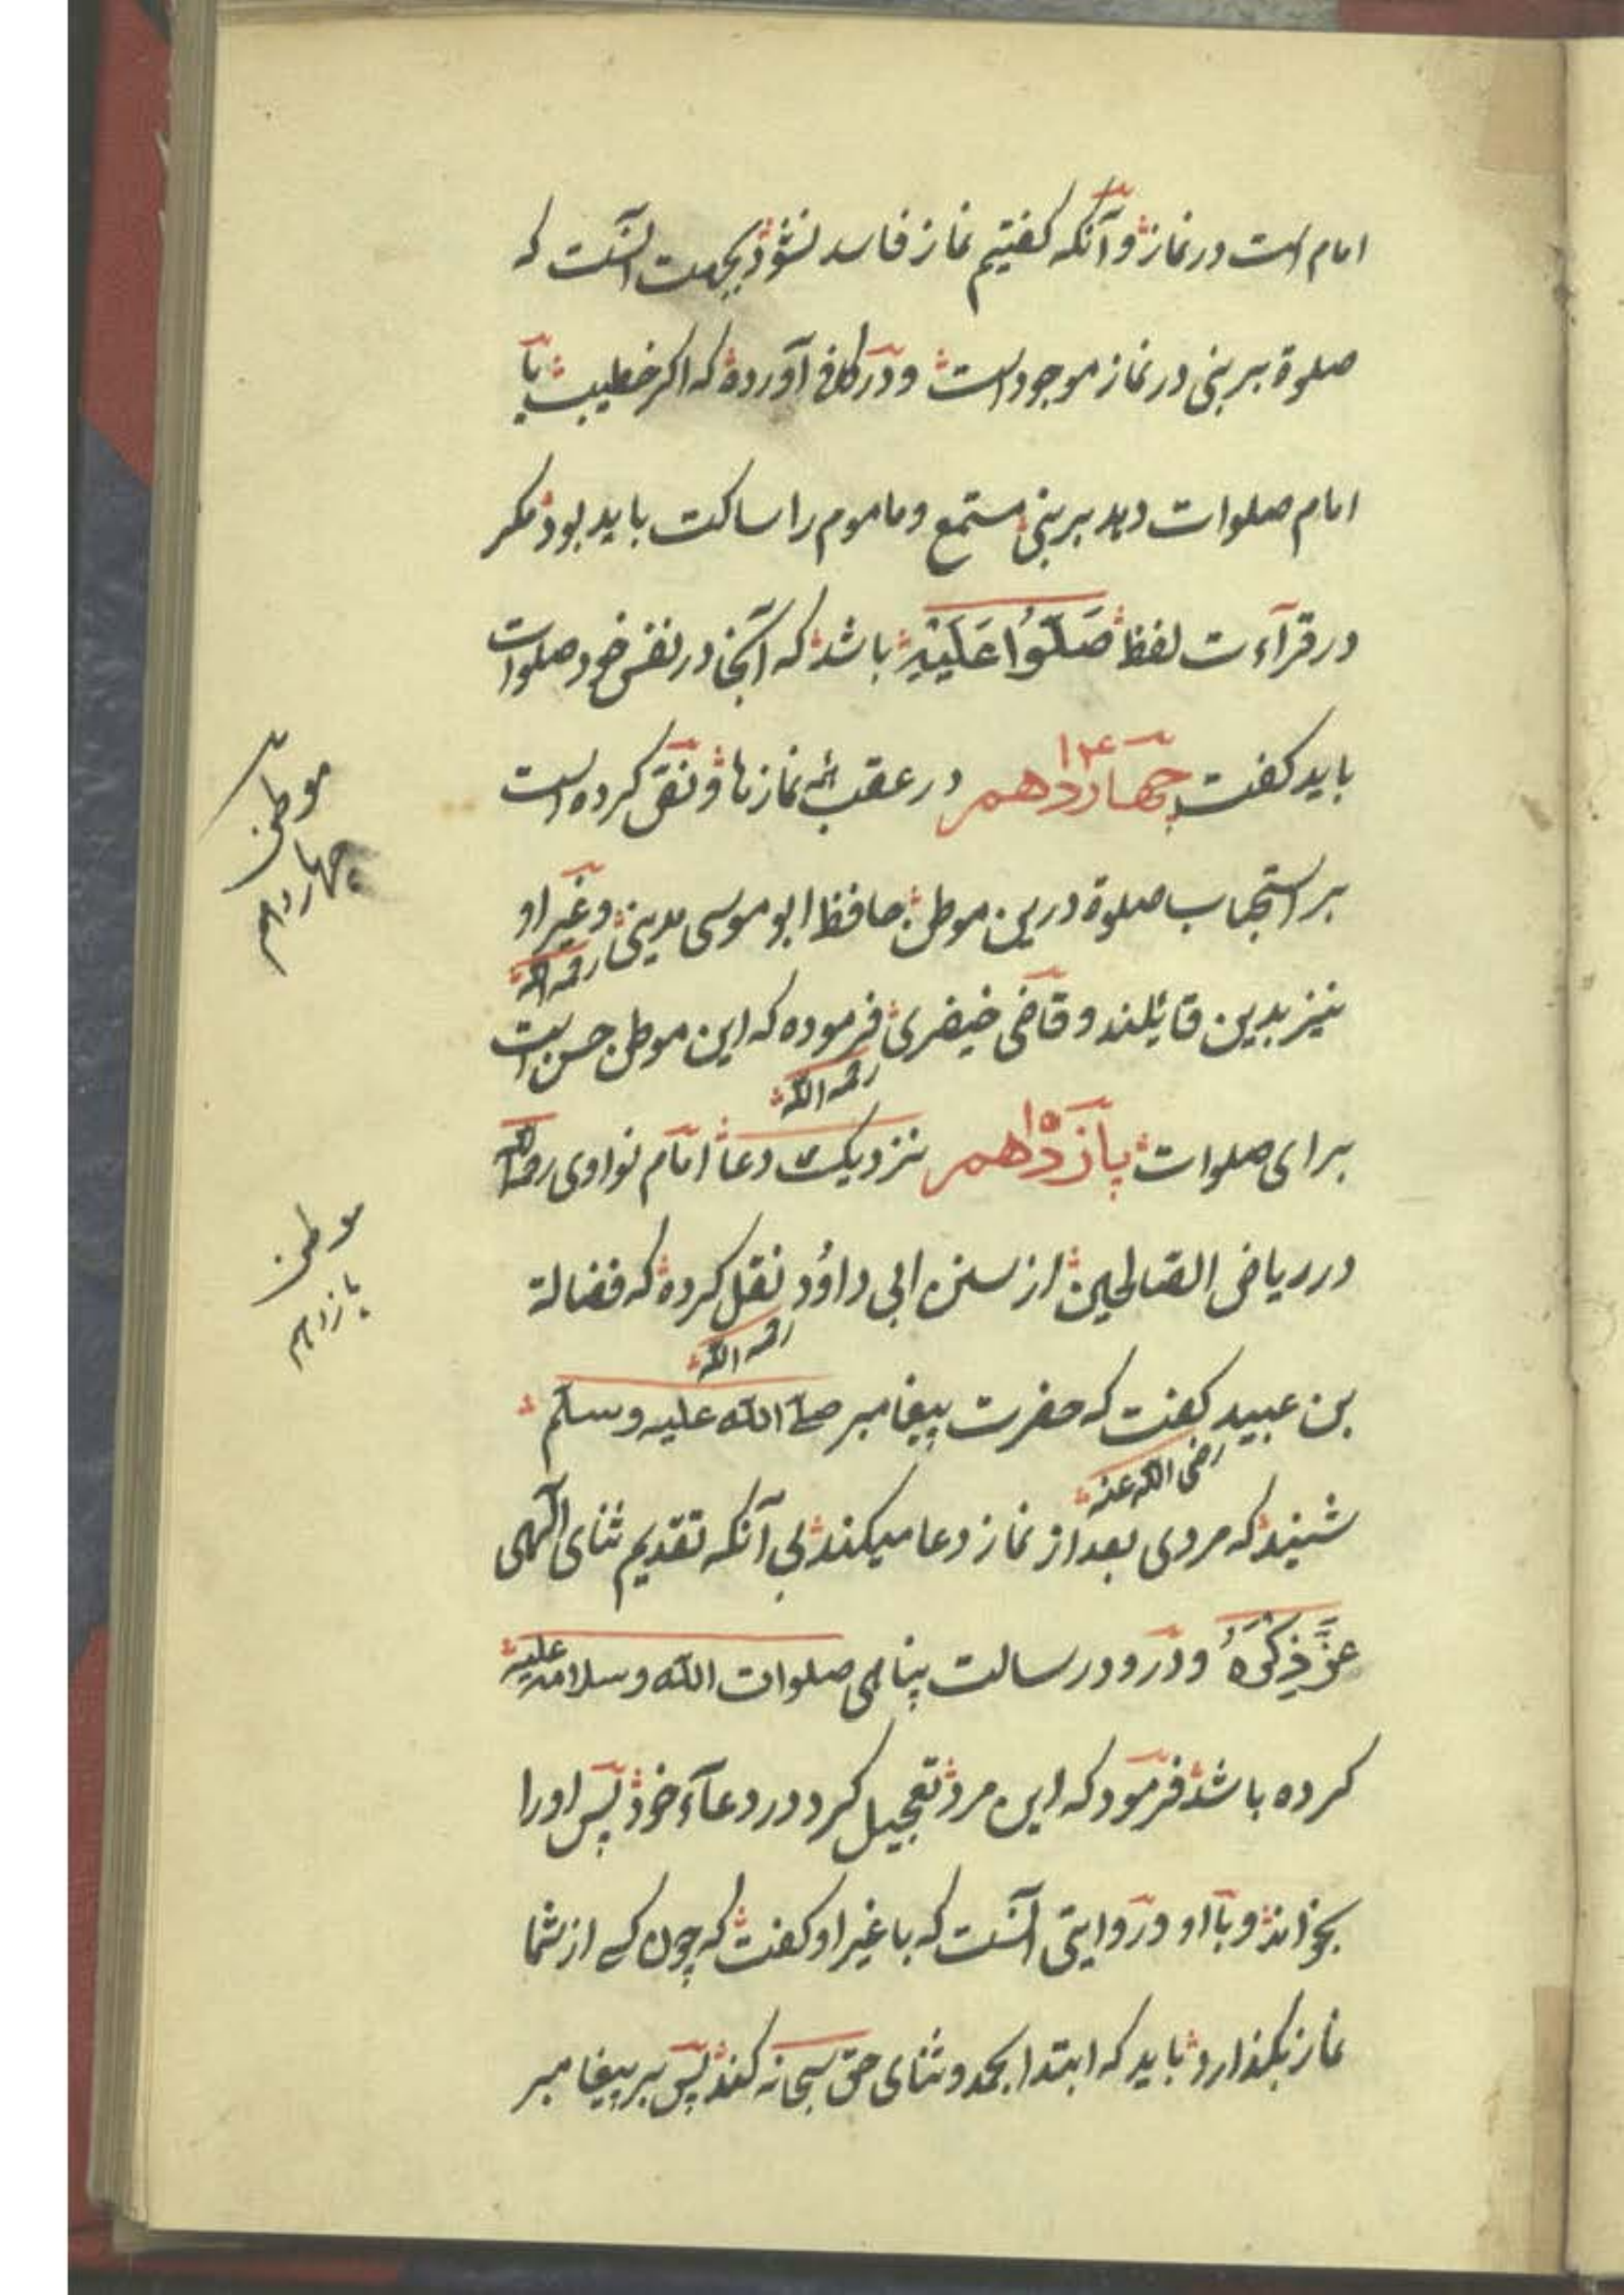 امام است در نماز و آنکه کفتیم نماز فاسد نشود بجهت آنست که
صلوة بر نبی در نماز موجود است و در کافی آورده که اکر خطیب یا
امام صلوات دهد بر نبی مستمع و ماموم را ساکت باید بود مکر
در قرآءت لفظ صَلُّوا عَلَیْهِ باشد که آنجا در نفس خود صلوات
باید کفت چهاردهم ۱۴ در عقب همه نمازها و نص کرده است
موطن چهاردهم
بر استحباب صلوة درین موطن حافظ ابو موسی مدینی و غیر او
رحمه الله
نیز بدین قائلند و قاضی خیضری فرموده که این موطن حسن است
رحمه الله
برای صلوات پازدهم ۱۵ نزدیک دعا امام نواوی رحمه الله
موطن پازدهم
در ریاض الصالحین از سنن ابی داؤد نقل کرده که فضالة
رحمه الله
بن عبید کفت که حضرت پیغامبر صلی الله علیه وسلم
رضی الله عنه
شنید که مردی بعد از نماز دعا میکند بی آنکه تقدیم ثنای الهی
عَزَّ ذِکْرُهُ و درود رسالت پناهی صلوات الله وسلامه علیه
کرده باشد فرمود که این مرد تعجیل کرد در دعآء خود پس او را
بخواند و با او و در روایتی آنست که با غیر او کفت که چون کسے از شما
نماز بکذارد باید که ابتدا بحمد و ثنای حق سبحانه کند پس بر پیغامبر